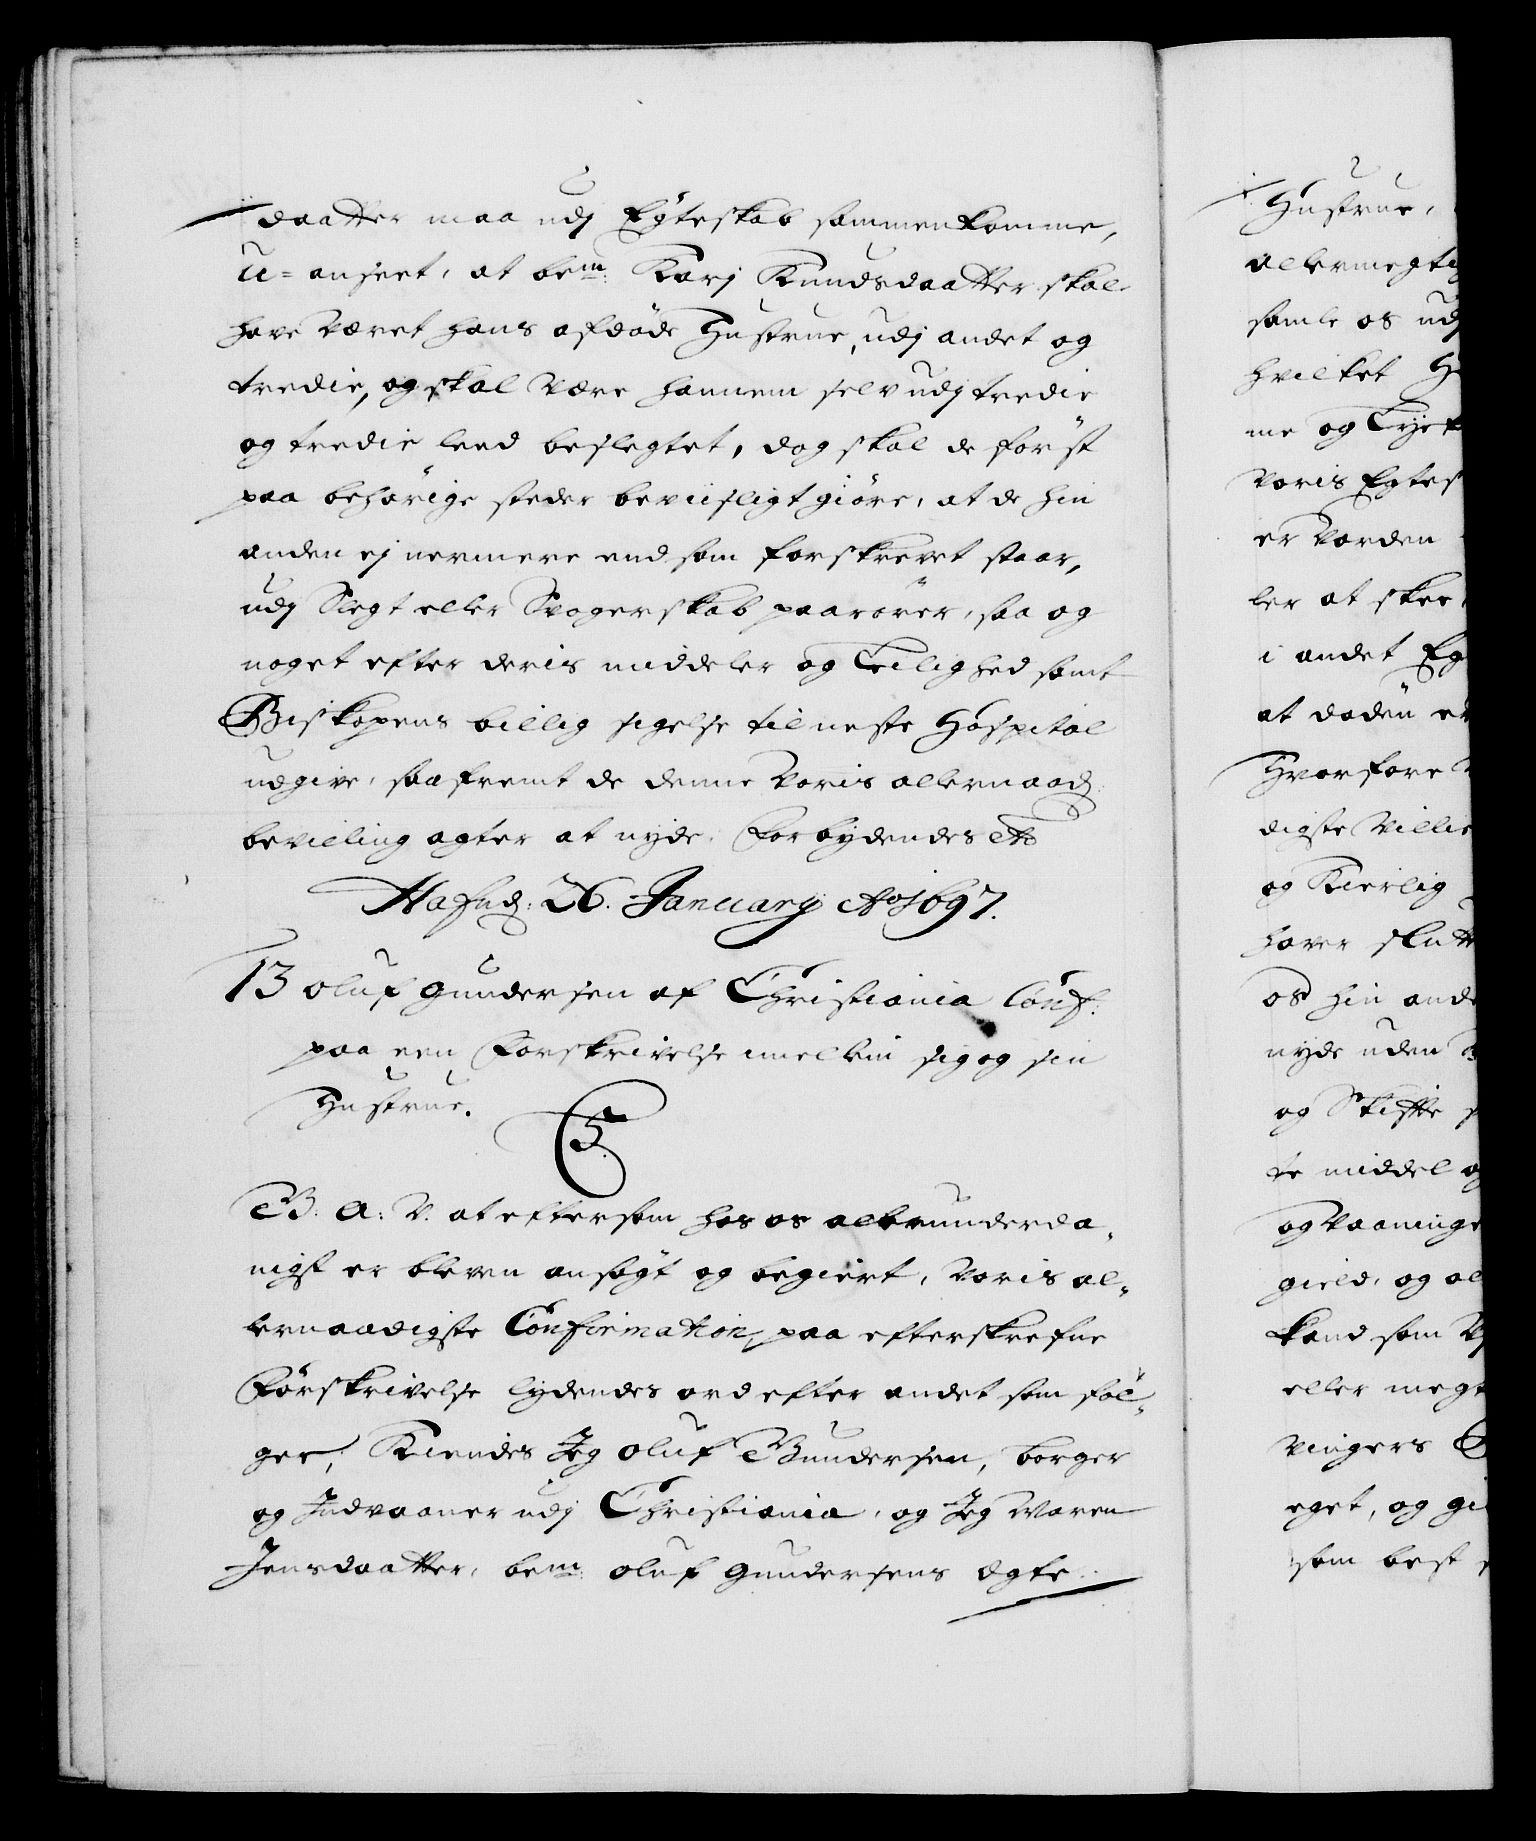 daatter maa udj Egteskab sammenkomme,
u=anseet, at bem: Karj Knudsdaatter skal
have været hans afdøde Hustrue, udj andet og
tredie, og skal være hannem selv udj tredie
og tredie leed beslegtet, dog skal de først
paa behørige steder beviisligt giøre, at de hin
anden ej nermere end som forskrevet staar,
udj Slegt eller Svogerskab paarører, saa og
noget efter deris middeler og Leilighed samt
Biskopens billig sigelse til neste Hospital
udgive, saafremt de denne voris allernaad:
bevilling agter at nyde. Forbydendes etc
Hafnd: 26. January Ao 1697.
13 Oluf Gundersen af Christiania Conf:
paa een Forskrivelse imellem sig og sin
Hustrue.
C5.
G. A: V. at eftersom hos os allerunderda-
nigst er bleven ansøgt og begiert, voris al-
lernaadigste Confirmation, paa efterskrefne
Forskrivelse lydendes ord efter andet som føl-
ger, Kiendes Jeg Oluf Gundersen, borger
og Indvaaner udj Christiania, og Jeg Maren
Jensdaatter, bem: Oluf Gundersens Egte
Hustrue,
allermegtig
samle os udj
hvilket
me og
voris Egtes
er vorden
ler at skee,
i andet Eg
at døden er
Hvorfore
digste Villie
og Kierlig
haver slutt
os hin ande
nyde uden
og Skifte
te middel og
og vaaninge
gield, og al
kand som
eller megt
vingers
eget, og gi
som best